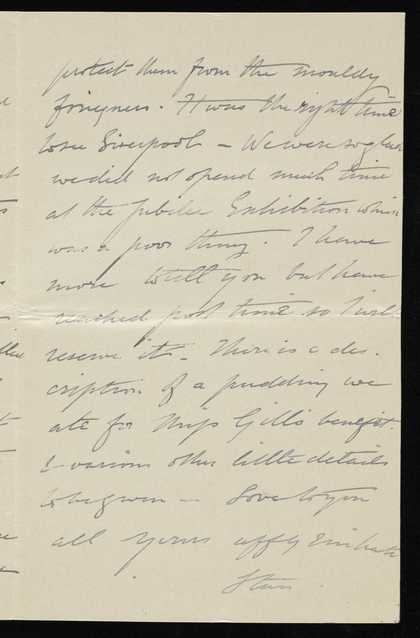 protect them from the mouldy
foreigners. It was the right time
to see Liverpool – We were so glad
we did not spend much time
at the Jubilee Exhibition which
was a poor thing. I have
more to tell you but have
reached post time so I will
reserve it – There is a des-
cription of a pudding we
ate for Miss Gill's benefit
& various other little details
to be given – Love to you
all Yours affly